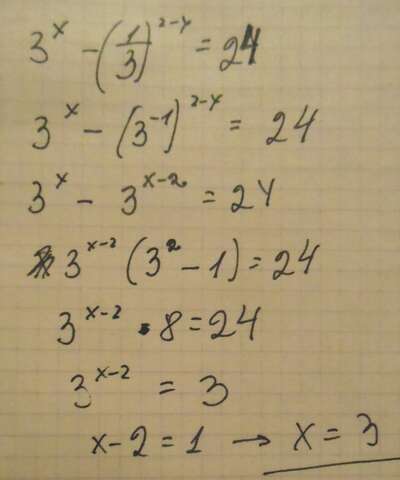 3^x - (1/3)^(2-x) = 24
3^x - (3^-1)^(2-x) = 24
3^x - 3^(x-2) = 24
3^(x-2) (3^2 - 1) = 24
3^(x-2) · 8 = 24
3^(x-2) = 3
x-2 = 1 → x = 3